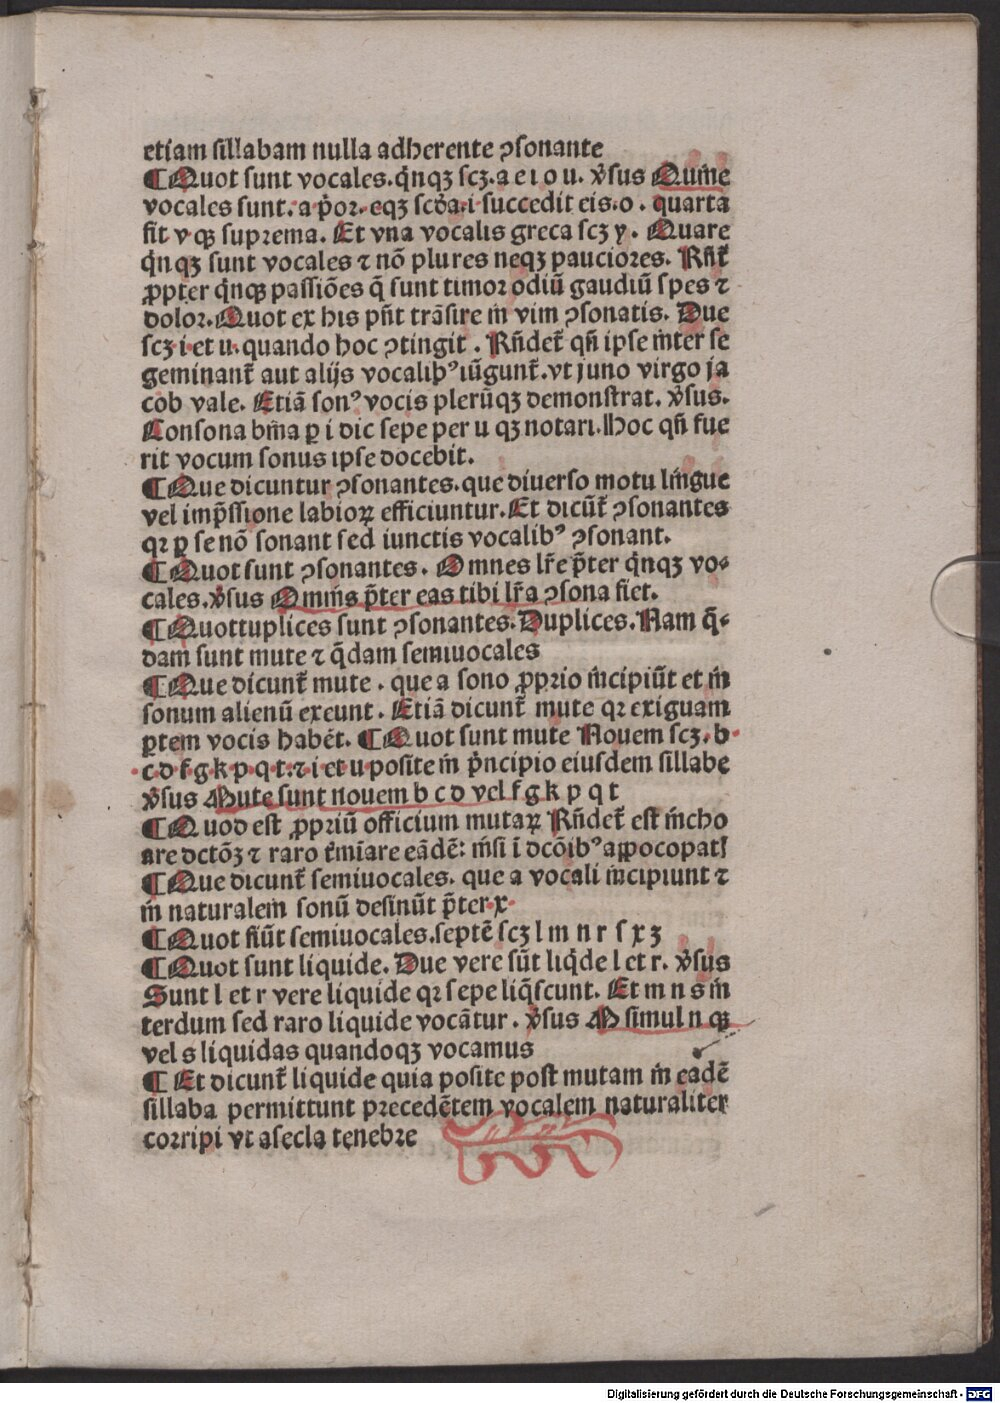 etiam sillabam nulla adherente ꝯsonante
¶ Quot sunt vocales. q̇nqꝫ scꝫ. a e ı o u. v̓sus Quın̄e
vocales sunt. a p̓oꝛ. eqꝫ scōa. i succedit eis. o. quarta
fit v qꝫ supꝛema. Et vna vocalis greca scꝫ y. Quare
q̇nqꝫ sunt vocales ⁊ nō plures neqꝫ pauciores. Rn̄t᷑
ꝓpter q̇nqꝫ passiōes q̄ sunt timoꝛ odiū gaudiū spes ⁊
doloꝛ. Quot ex his pn̄t trāsire in̄ vim ꝯsonatis. Due
scꝫ i et u. quando hoc ꝯtingit. Rn̄det᷑ qn̄ ipse in̄ter se
geminant᷑ aut alijs vocalibꝰ iūgunt᷑. vt juno virgo ja
cob vale. Etiā sonꝰ vocis plerūqꝫ demonstrat. v̓sus.
Consona bīna ꝑ i dic sepe per u qꝫ notari. Hoc qn̄ fue
rit vocum sonus ipse docebit.
¶ Que dicuntur ꝯsonantes. que diuerso motu lin̄gue
vel imp̄ssione labioꝝ efficiuntur. Et dicūt᷑ ꝯsonantes
qꝛ ꝑ se nō sonant sed iunctis vocalibꝰ ꝯsonant.
¶ Quot sunt ꝯsonantes. Omnes lr̄e p̄ter q̇nqꝫ vo⸗
cales. v̓sus Omīs p̄ter eas tibi lr̄a ꝯsona fiet.
¶ Quottuplices sunt ꝯsonantes. Duplices. Nam q̄⸗
dam sunt mute ⁊ q̄dam semiuocales
¶ Que dicunt᷑ mute. que a sono ꝓpꝛio in̄cipiūt et in̄
sonum alienū exeunt. Etiā dicunt᷑ mute qꝛ exiguam
ꝑtem vocis habēt. ¶ Quot sunt mute Nouem scꝫ. b
c d f g k p q t. ⁊ i et u posite in̄ p̓ncipio eiusdem sillabe
v̓sus Mute sunt nouem b c d vel f g k p q t
¶ Quod est ꝓpꝛiū officium mutaꝝ Rn̄det᷑ est in̄cho
are dctōꝫ ⁊ raro t̓mīare eādē: nisi ī dcōibꝰ appocopatꝭ
¶ Que dicunt᷑ semiuocales. que a vocali in̄cipiunt ⁊
in̄ naturalem sonū desinūt p̄ter x
¶ Quot fiūt semiuocales. septē scꝫ l m n r s x ꝫ
¶ Quot sunt liquide. Due vere sūt liq̇de l et r. v̓sus
Sunt l et r vere liquide qꝛ sepe liq̄scunt. Et m n s in̄
terdum sed raro liquide vocātur. v̓sus M simul n qꝫ
vel s liquidas quandoqꝫ vocamus
¶ Et dicunt᷑ liquide quia posite post mutam in̄ eadē
sillaba permittunt pꝛecedētem vocalem naturaliter
coꝛripi vt asecla tenebꝛe
Digitalisierung gefördert durch die Deutsche Forschungsgemeinschaft - DFG